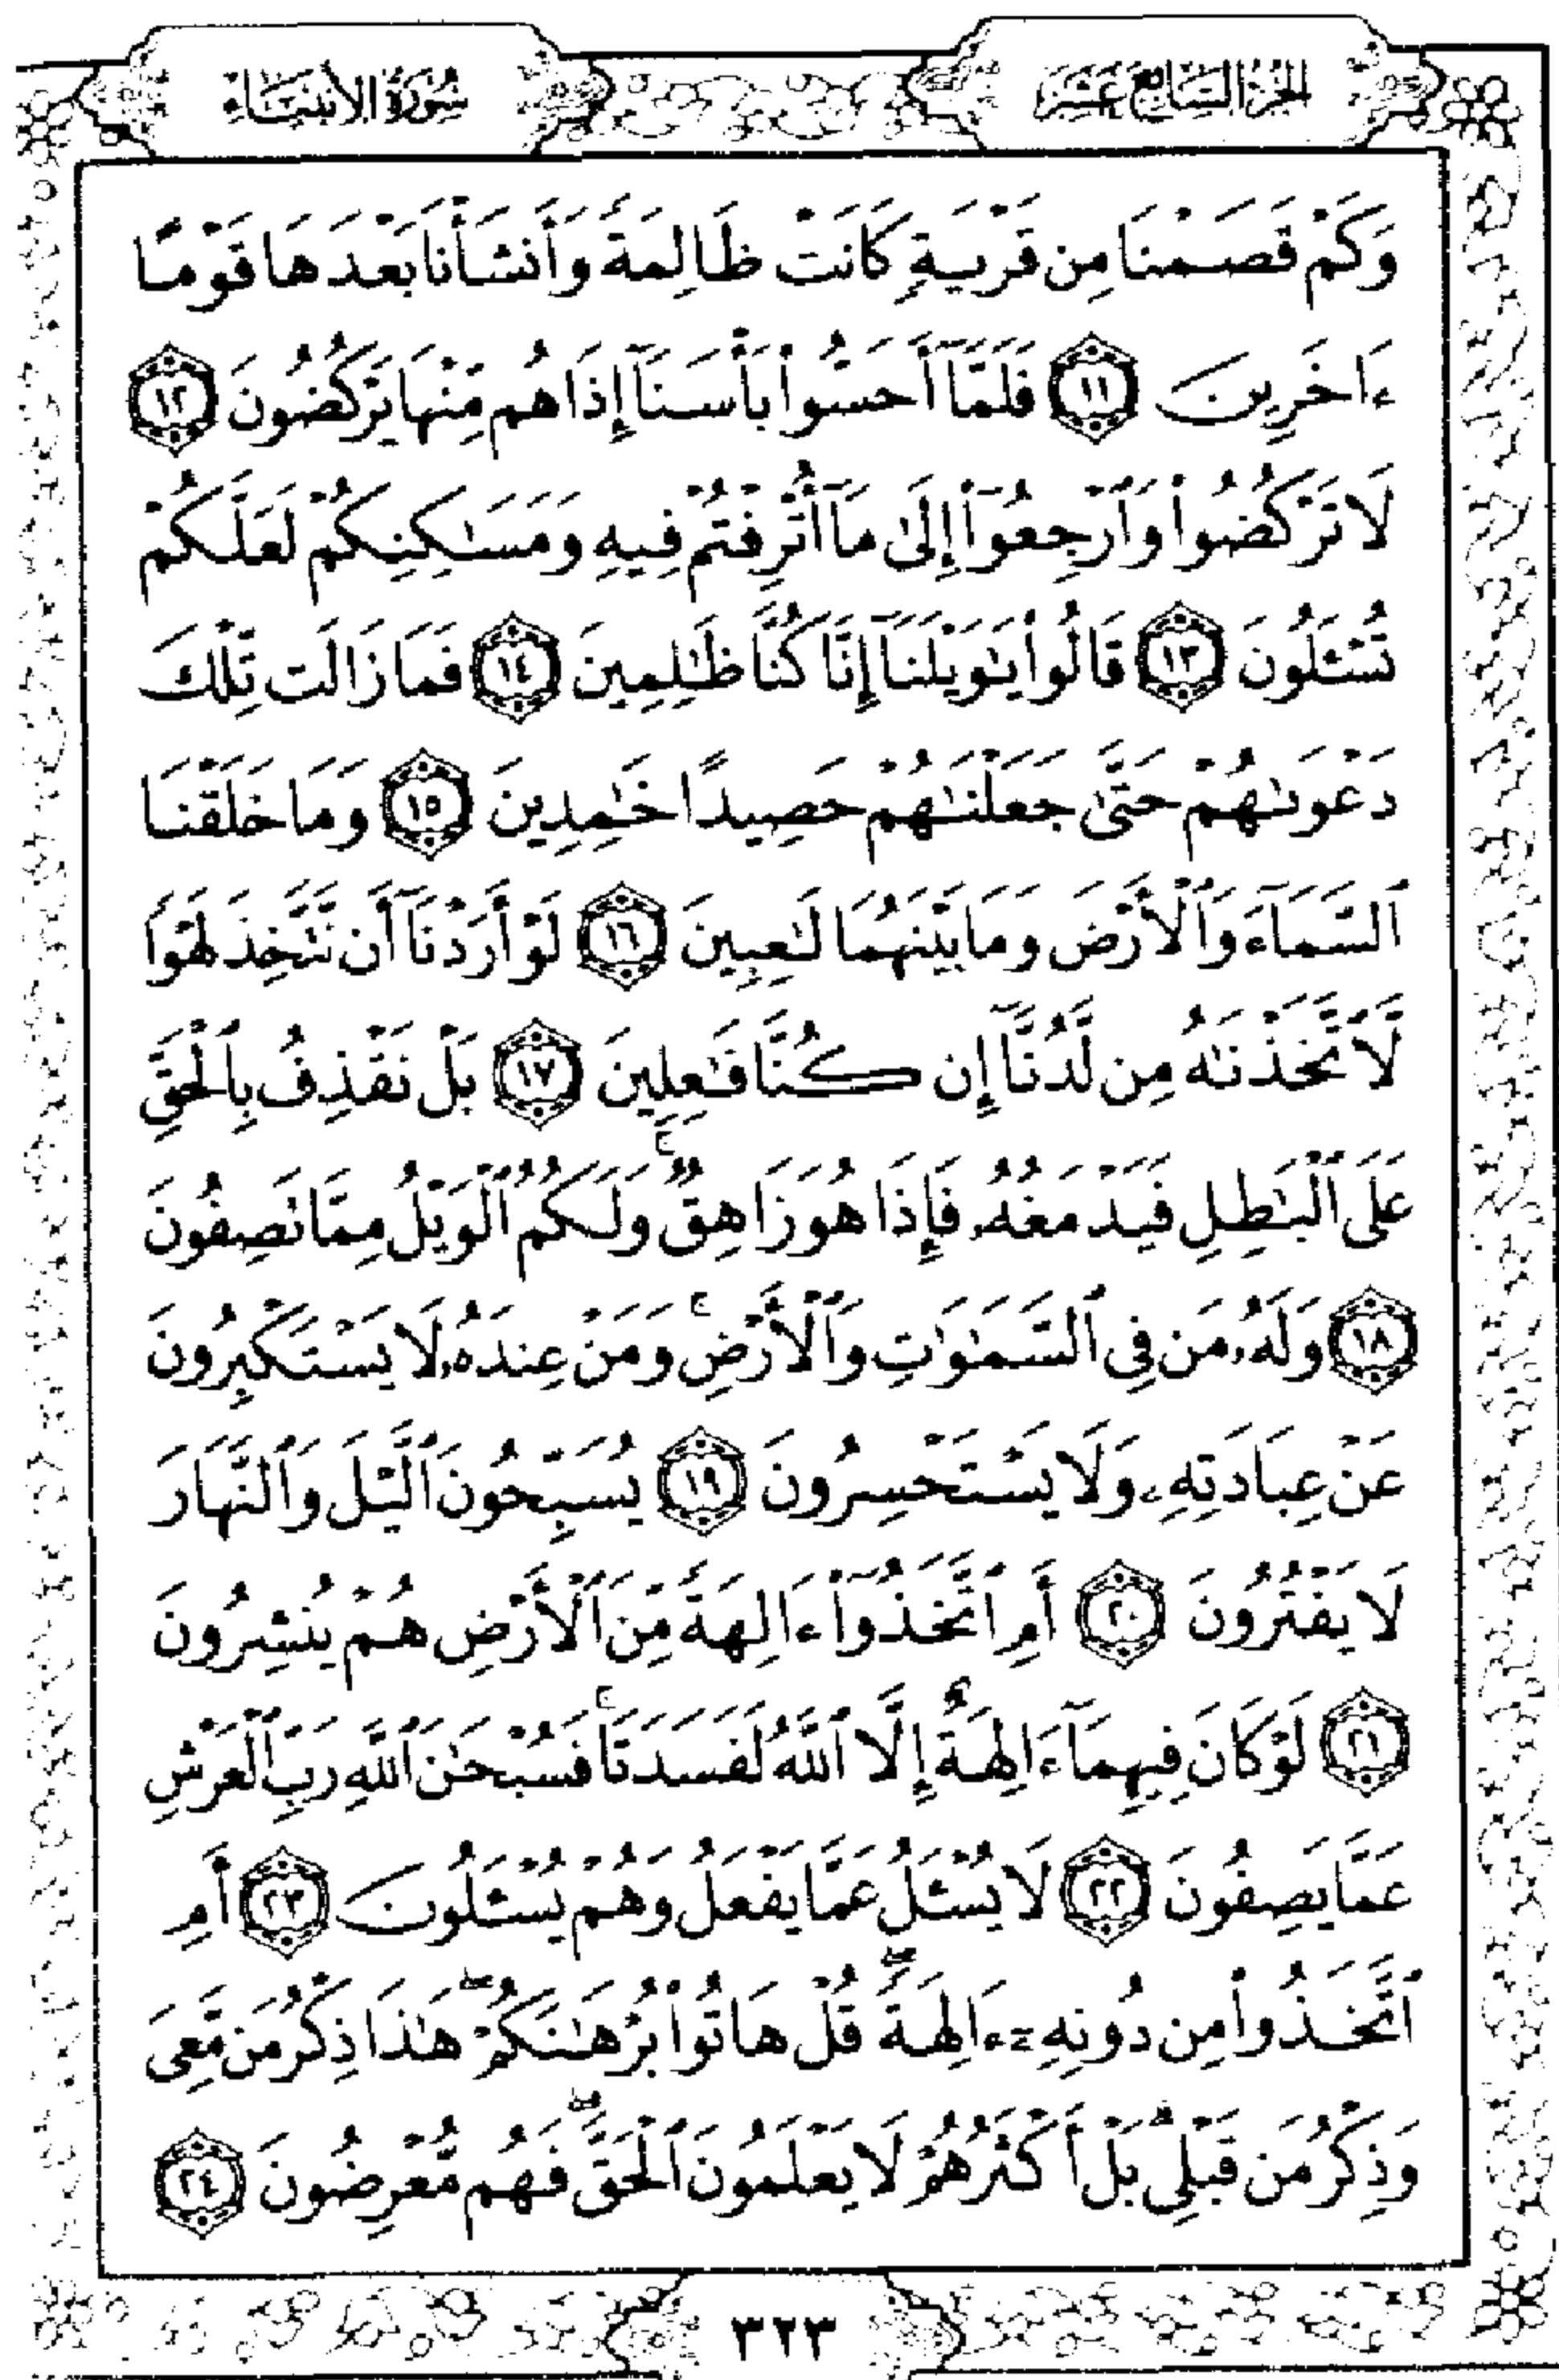 الجزء السابع عشر
سورة الأنبياء
وَكَمْ قَصَمْنَا مِن قَرْيَةٍ كَانَتْ ظَالِمَةً وَأَنشَأْنَا بَعْدَهَا قَوْمًا
ءَاخَرِينَ ١١ فَلَمَّآ أَحَسُّوا۟ بَأْسَنَآ إِذَا هُم مِّنْهَا يَرْكُضُونَ ١٢
لَا تَرْكُضُوا۟ وَٱرْجِعُوٓا۟ إِلَىٰ مَآ أُتْرِفْتُمْ فِيهِ وَمَسَٰكِنِكُمْ لَعَلَّكُمْ
تُسْـَٔلُونَ ١٣ قَالُوا۟ يَٰوَيْلَنَآ إِنَّا كُنَّا ظَٰلِمِينَ ١٤ فَمَا زَالَت تِّلْكَ
دَعْوَىٰهُمْ حَتَّىٰ جَعَلْنَٰهُمْ حَصِيدًا خَٰمِدِينَ ١٥ وَمَا خَلَقْنَا
ٱلسَّمَآءَ وَٱلْأَرْضَ وَمَا بَيْنَهُمَا لَٰعِبِينَ ١٦ لَوْ أَرَدْنَآ أَن نَّتَّخِذَ لَهْوًا
لَّٱتَّخَذْنَٰهُ مِن لَّدُنَّآ إِن كُنَّا فَٰعِلِينَ ١٧ بَلْ نَقْذِفُ بِٱلْحَقِّ
عَلَى ٱلْبَٰطِلِ فَيَدْمَغُهُۥ فَإِذَا هُوَ زَاهِقٌ ۚ وَلَكُمُ ٱلْوَيْلُ مِمَّا نَصِفُونَ
١٨ وَلَهُۥ مَن فِى ٱلسَّمَٰوَٰتِ وَٱلْأَرْضِ ۚ وَمَنْ عِندَهُۥ لَا يَسْتَكْبِرُونَ
عَنْ عِبَادَتِهِۦ وَلَا يَسْتَحْسِرُونَ ١٩ يُسَبِّحُونَ ٱلَّيْلَ وَٱلنَّهَارَ
لَا يَفْتُرُونَ ٢٠ أَمِ ٱتَّخَذُوٓا۟ ءَالِهَةً مِّنَ ٱلْأَرْضِ هُمْ يُنشِرُونَ
٢١ لَوْ كَانَ فِيهِمَآ ءَالِهَةٌ إِلَّا ٱللَّهُ لَفَسَدَتَا ۚ فَسُبْحَٰنَ ٱللَّهِ رَبِّ ٱلْعَرْشِ
عَمَّا يَصِفُونَ ٢٢ لَا يُسْـَٔلُ عَمَّا يَفْعَلُ وَهُمْ يُسْـَٔلُونَ ٢٣ أَمِ
ٱتَّخَذُوا۟ مِن دُونِهِۦٓ ءَالِهَةً ۖ قُلْ هَاتُوا۟ بُرْهَٰنَكُمْ ۖ هَٰذَا ذِكْرُ مَن مَّعِىَ
وَذِكْرُ مَن قَبْلِى ۗ بَلْ أَكْثَرُهُمْ لَا يَعْلَمُونَ ٱلْحَقَّ ۖ فَهُم مُّعْرِضُونَ ٢٤
٣٢٣